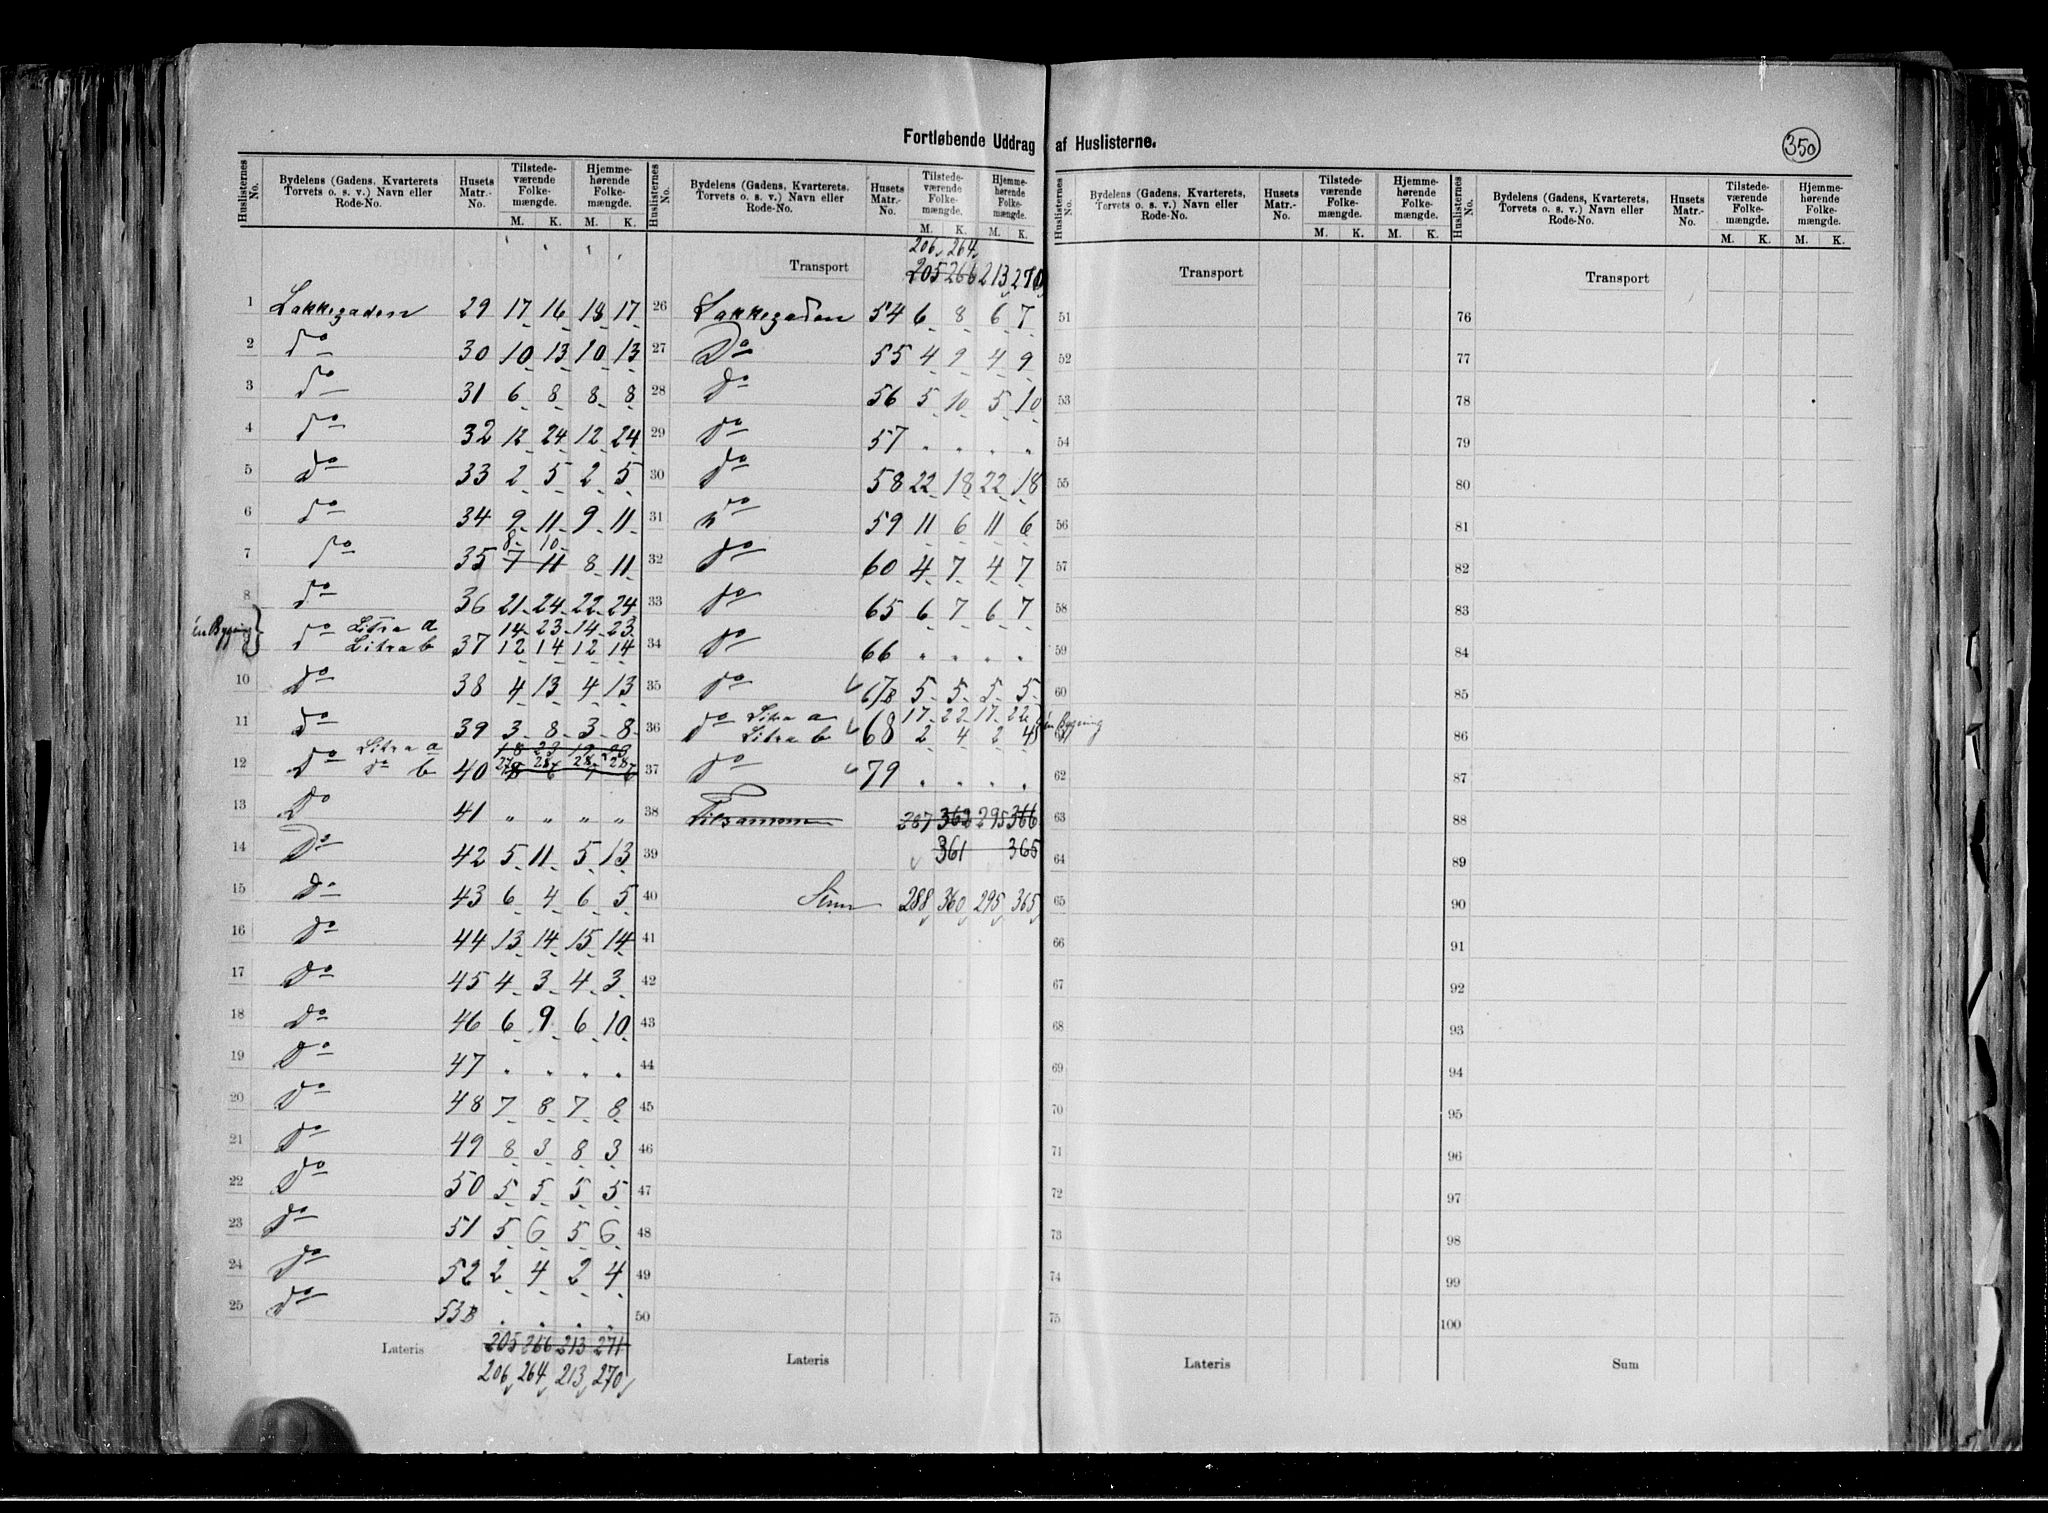 Fortløbende Uddrag af Huslisterne.
350
Huslisternes No. Bydelens (Gadens, Kvarterets Torvets o. s. v.) Navn eller Rode-No. Husets Matr.-No. Tilstede-værende Folke-mængde. M. K. Hjemme-hørende Folke-mængde. M. K.
1 Lakkegaden 29 17 16 18 17
2 Do 30 10 13 10 13
3 Do 31 6 8 8 8
4 Do 32 12 24 12 24
5 Do 33 2 5 2 5
6 Do 34 9 11 9 11
8 10
7 Do 35 7 11 8 11
8 Do 36 21 24 22 24
én Bygning
Do Litra a 14 23 14 23
Do Litra b 37 12 14 12 14
10 Do 38 4 13 4 13
11 Do 39 3 8 3 8
Litra a 18 23 19 23
12 Do do b 40 27 28 28 28
13 Do 41 " " " "
14 Do 42 5 11 5 13
15 Do 43 6 4 6 5
16 Do 44 13 14 15 14
17 Do 45 4 3 4 3
18 Do 46 6 9 6 10
19 Do 47 " " " "
20 Do 48 7 8 7 8
21 Do 49 8 3 8 3
22 Do 50 5 5 5 5
23 Do 51 5 6 5 6
24 Do 52 2 4 2 4
25 Do 53B " " " "
205 266 213 271
Lateris
206 264 213 270
Huslisternes No. Bydelens (Gadens, Kvarterets, Torvets o. s. v.) Navn eller Rode-No. Husets Matr.-No. Tilstede-værende Folke-mængde. M. K. Hjemme-hørende Folke-mængde. M. K.
206 264
Transport 205 266 213 270
26 Lakkegaden 54 6 8 6 7
27 Do 55 4 9 4 9
28 Do 56 5 10 5 10
29 Do 57 " " " "
30 Do 58 22 18 22 18
31 Do 59 11 6 11 6
32 Do 60 4 7 4 7
33 Do 65 6 7 6 7
34 Do 66 " " " "
35 Do 67B 5 5 5 5
36 Do Litra a 17 22 17 22 én Bygning
Litra b 68 2 4 2 4
37 Do 79 " " " "
38 Tilsammen 287 362 295 366
39 361 365
40 Sum 288 360 295 365
41
42
43
44
45
46
47
48
49
50
Lateris
Huslisternes No. Bydelens (Gadens, Kvarterets, Torvets o. s. v.) Navn eller Rode-No. Husets Matr.-No. Tilstede-værende Folke-mængde. M. K. Hjemme-hørende Folke-mængde. M. K.
Transport
51
52
53
54
55
56
57
58
59
60
62
63
64
65
66
67
68
69
70
71
72
73
74
75
Lateris
Huslisternes No. Bydelens (Gadens, Kvarterets, Torvets o. s. v.) Navn eller Rode-No. Husets Matr.-No. Tilstede-værende Folke-mængde. M. K. Hjemme-hørende Folke-mængde. M. K.
Transport
76
77
78
79
80
81
82
83
84
85
86
87
88
89
90
91
92
93
94
95
96
97
98
99
100
Sum